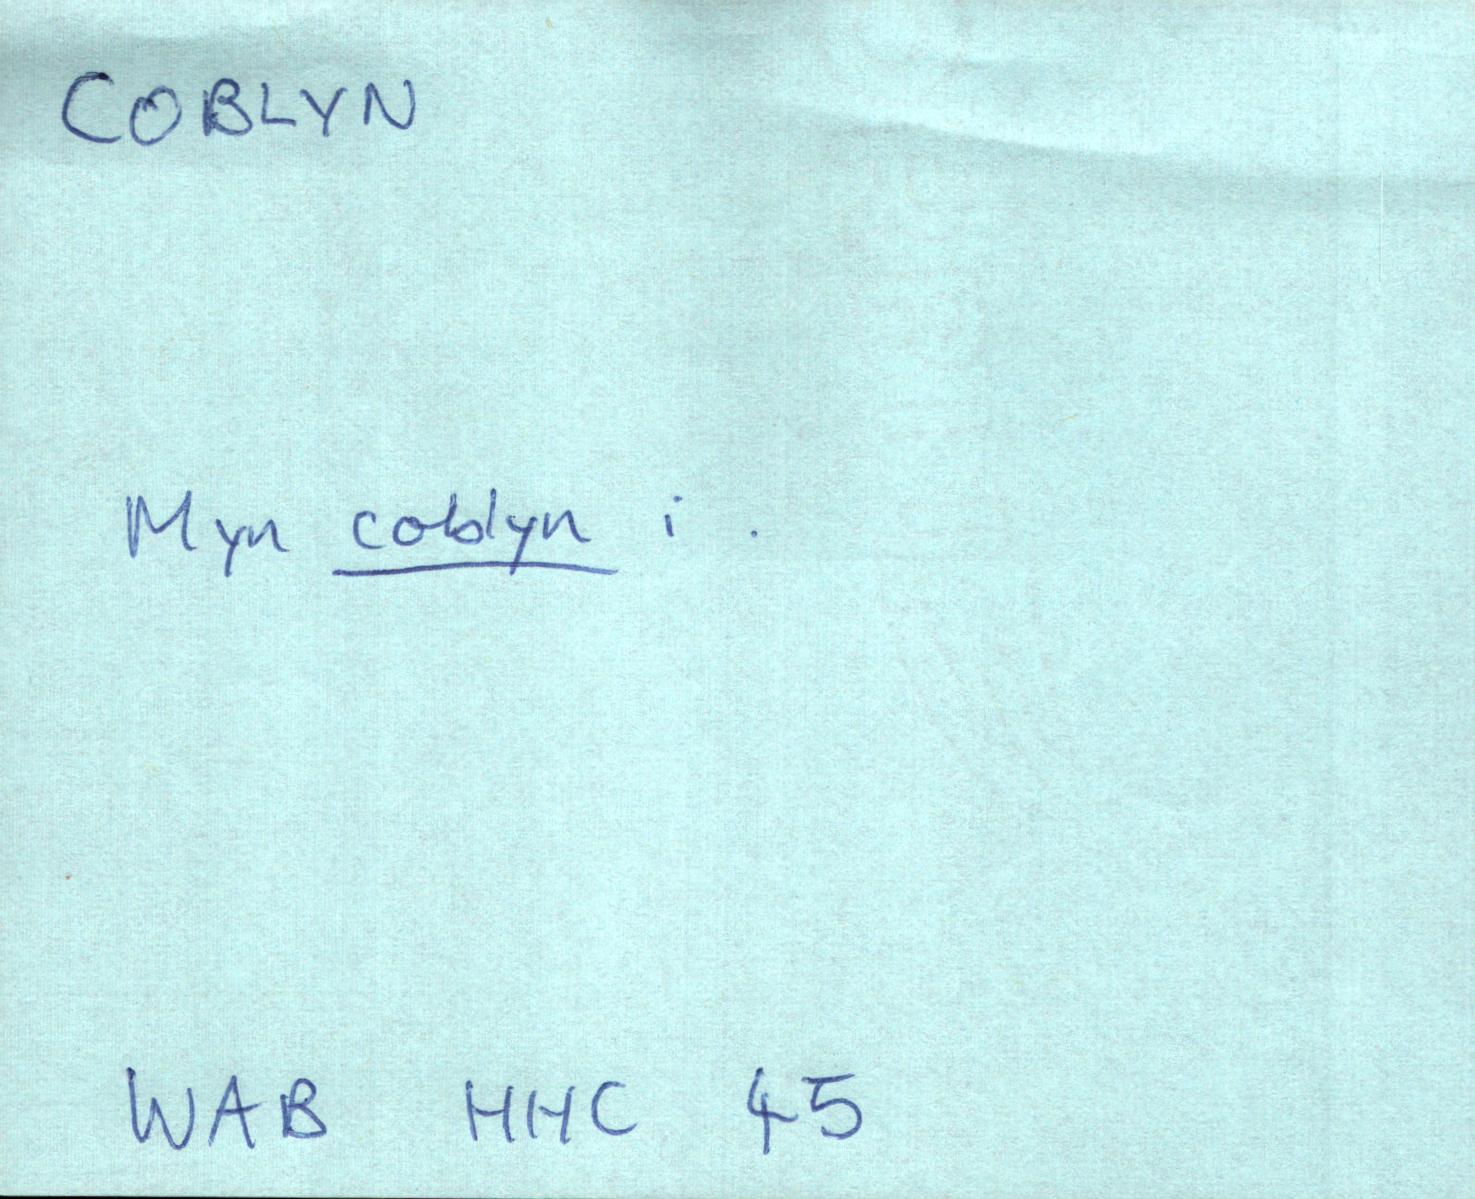 COBLYN
Myn coblyn i .
WAB HHC 45